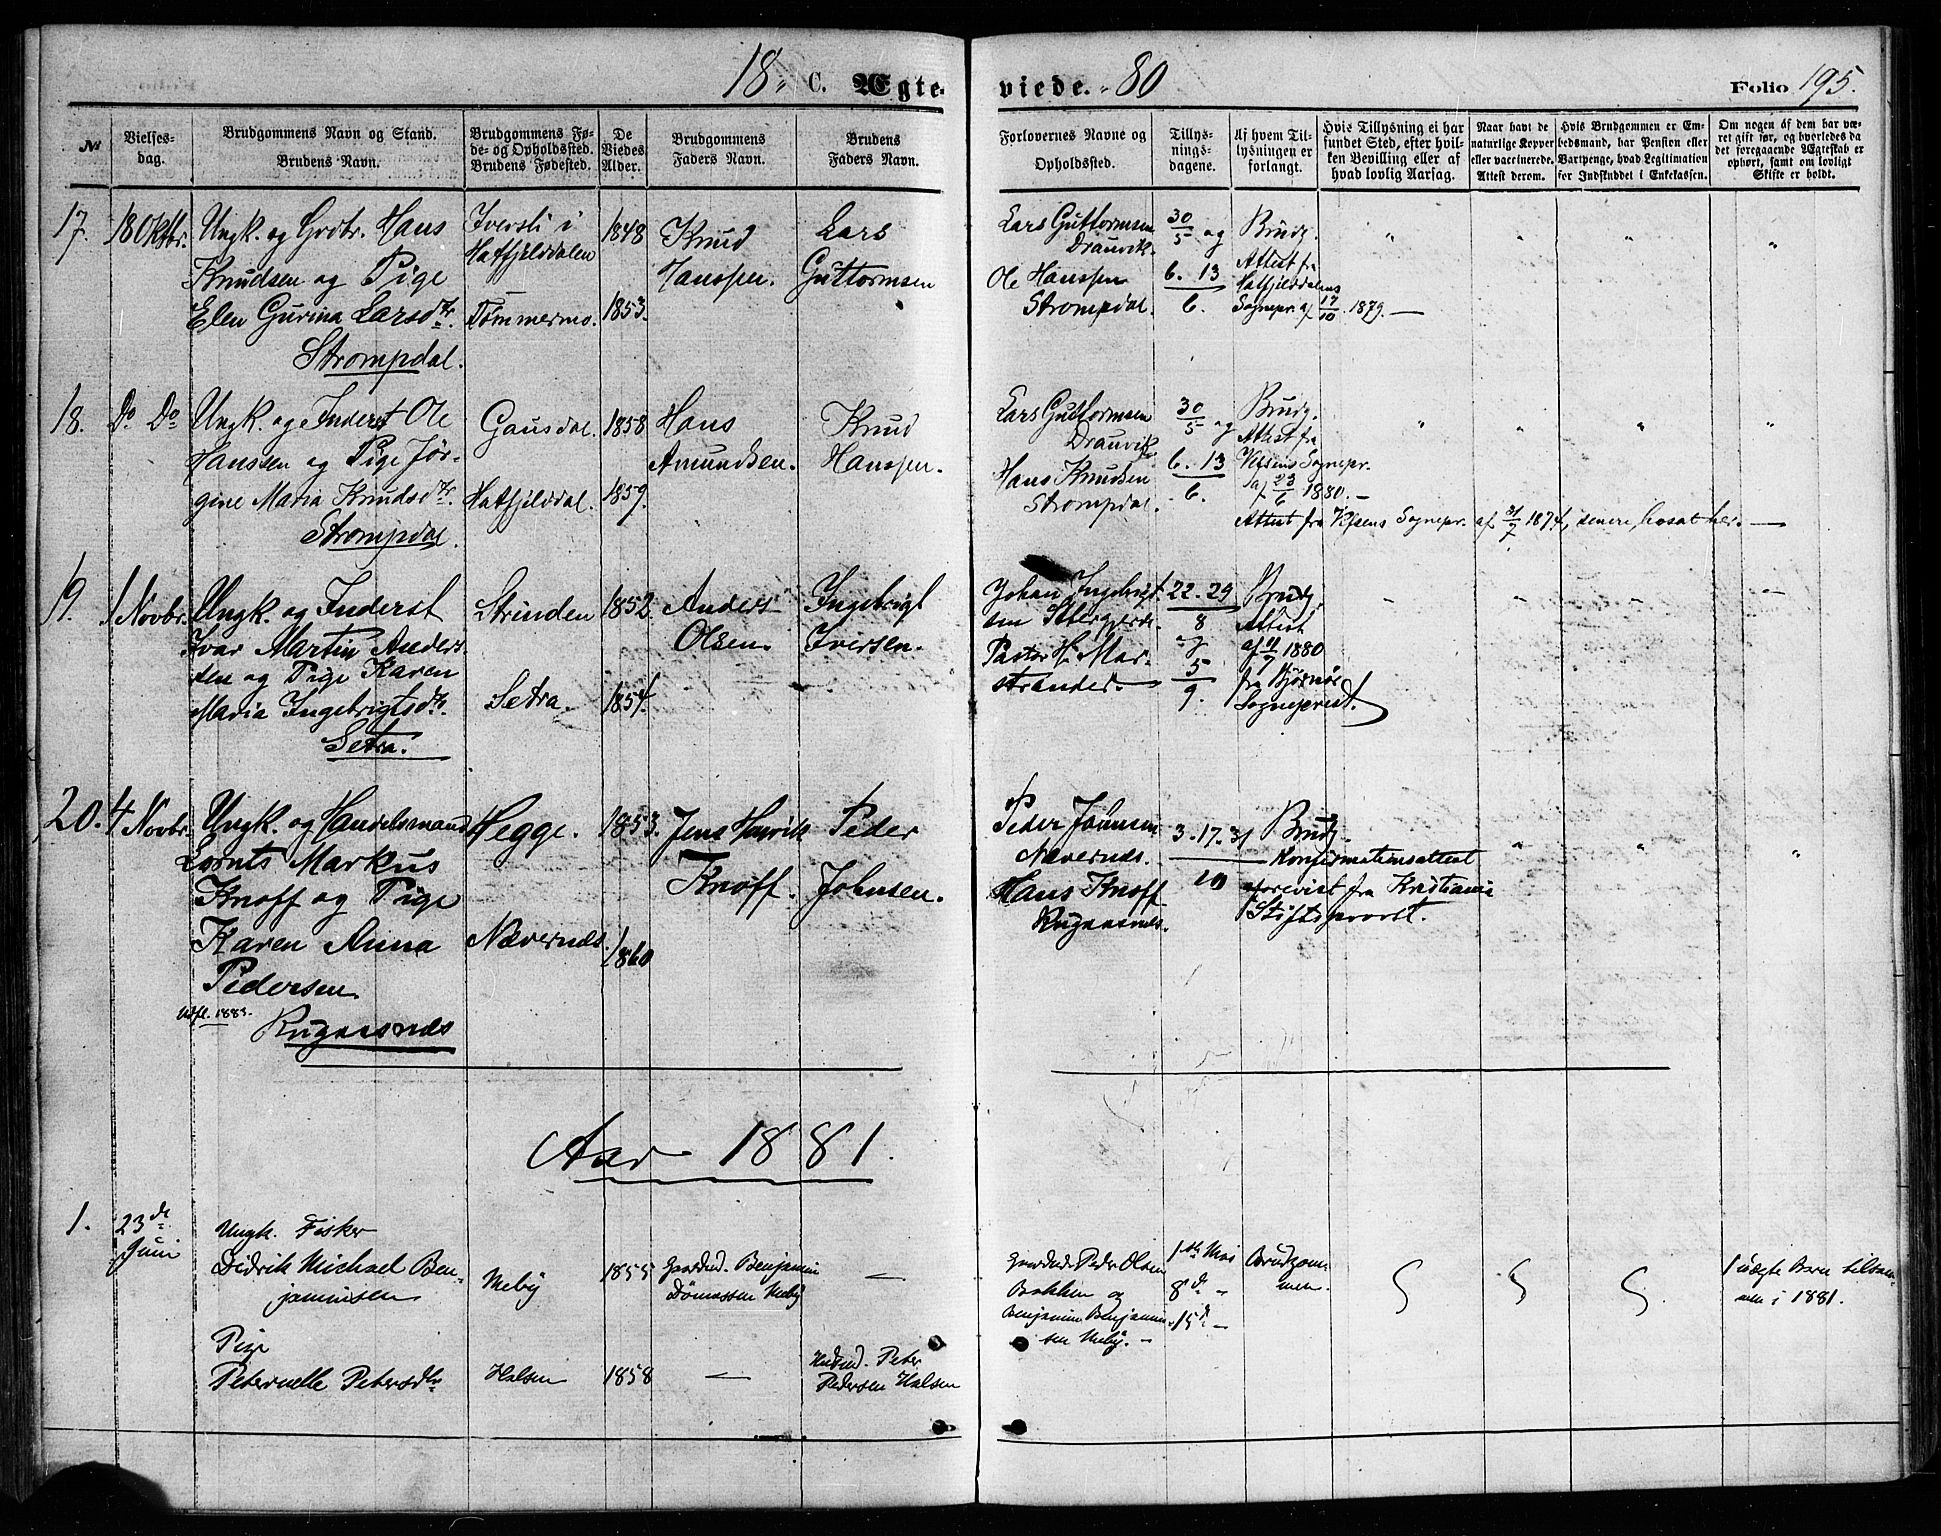 18 „ C. Ægte-
viede. „ 80
Folio 195.
№
Vielses-
dag.
Brudgommens Navn og Stand.
Brudens Navn.
Brudgommens Fø-
de- og Opholdssted.
Brudens Fødested.
De
Viedes
Alder.
Brudgommens
Faders Navn.
Brudens
Faders Navn.
Forlovernes Navne og
Opholdssted.
Tillys-
nings-
dagene.
Af hvem Til-
lysningen er
forlangt.
Hvis Tillysning ei har
fundet Sted, efter hvil-
ken Bevilling eller af
hvad lovlig Aarsag.
Naar havt de
naturlige Kopper
eller vaccinerede.
Attest derom.
Hvis Brudgommen er Em-
bedsmand, har Pension eller
Vartpenge, hvad Legitimation
for Indskuddet i Enkekassen.
Om nogen af dem har væ-
ret gift før, og hvorledes da
det foregaaende Ægteskab er
ophørt, samt om lovligt
Skifte er holdt.
17. 18 Oktbr. Ungk. og Grdbr. Hans
Knudsen og Pige
Elen Gurina Larsdtr.
Strompdal.
Iversli i
Hatfjelddalen
Tømmermo.
1848
1853.
Knud
Hanssen.
Lars
Guttormsen
Lars Guttormsen
Drauvik.
Ole Hanssen
Strompdal.
30
5 og
6. 13
6.
Brudg.
Attest fra
Hatfjelddalens
Sognepr. af 17/10. 1879. —
„ „ „ „
18. Do Do Ungk. og Inderst Ole
Hanssen og Pige Jør-
gine Maria Knudsdtr.
Strompdal.
Gausdal.
Hatfjelddal.
1858
1859.
Hans
Amundsen.
Knud
Hanssen.
Lars Guttormsen
Drauvik
Hans Knudsen
Strompdal.
30
5 og
6. 13
6.
Brudg.
Attest fra
Vefsens Sognepr.
af 23/6 1880. —
Attest fra Vefsens Sognepr. af 31/7 1874, senere bosat her. —
„ „ „ „
19. 1 Novbr. Ungk. og Inderst
Ivar Martin Anders-
sen og Pige Karen
Maria Ingebrigtsdtr.
Setra.
Strinden
Setra.
1852.
1854.
Anders
Olsen.
Ingebrigt
Iversen.
Johan Ingebrigt-
sen
Pastor H. Mar-
strander.
22. 29
8
og
5
9.
Brudg.
Attest
1880
fra
Sogneprest.
„ „ „ „
20. 4 Novbr. Ungk. og Handelsmand
Lornts Markus
Knoff og Pige
Karen Anna
Pedersen.
Udfl. 1883.
Rugaasnæs
Hegge.
Nævernæs.
1853.
1860
Jens Henrik
Knoff.
Peder
Johnsen.
Peder Johnsen
Nævernæs.
Hans Knoff
Rugaasnæs.
3. 17. 31
10
Brudg.
Konfirmationsattest
forevist fra Kristiania
Stiftsprovst.
„ „ „
Aar 1881.
1. 23de
Juni
Ungk. Fisker
Didrik Michael Ben-
jaminsen
Meby
1855
Gaardmd. Benjamin
Meby
—
Gaardmd. Peder Olsen
Bakken og
Benjamin Benjamin-
sen Meby. —
1ste Mai
8de „
15de —
Brudgom-
men
1 uægte Barn tilsam-
men i 1881.
Pige
Peternelle Petersdtr
Halsen
1858
—
Husmd. Peter
Pedersen Halsen